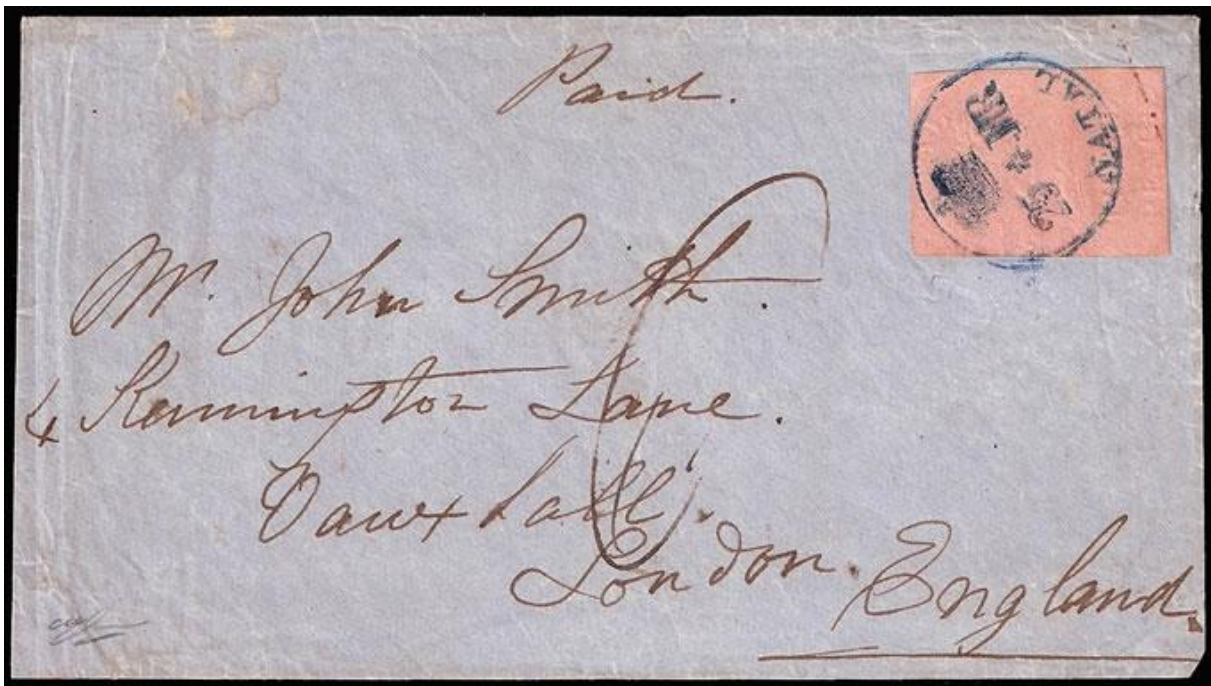 Paid.
NATAL
Mr. John Smith.
6
4 Kennington Lane.
Vauxhall.
London. England.